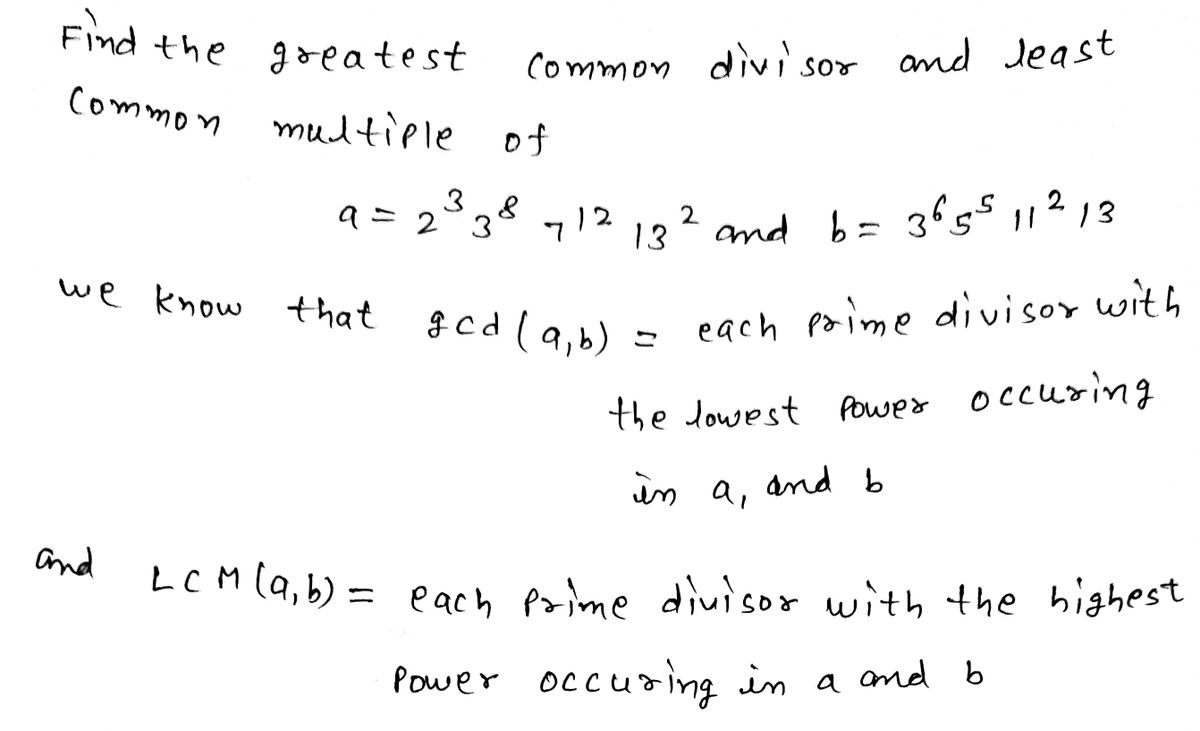 Find the greatest common divisor and least
Common multiple of
a = 2³3⁸ 7¹² 13² and b = 3⁶5⁵ 11² 13
we know that gcd (a,b) = each prime divisor with
the lowest Power occuring
in a, and b
and LCM (a,b) = each Prime divisor with the highest
Power occuring in a and b